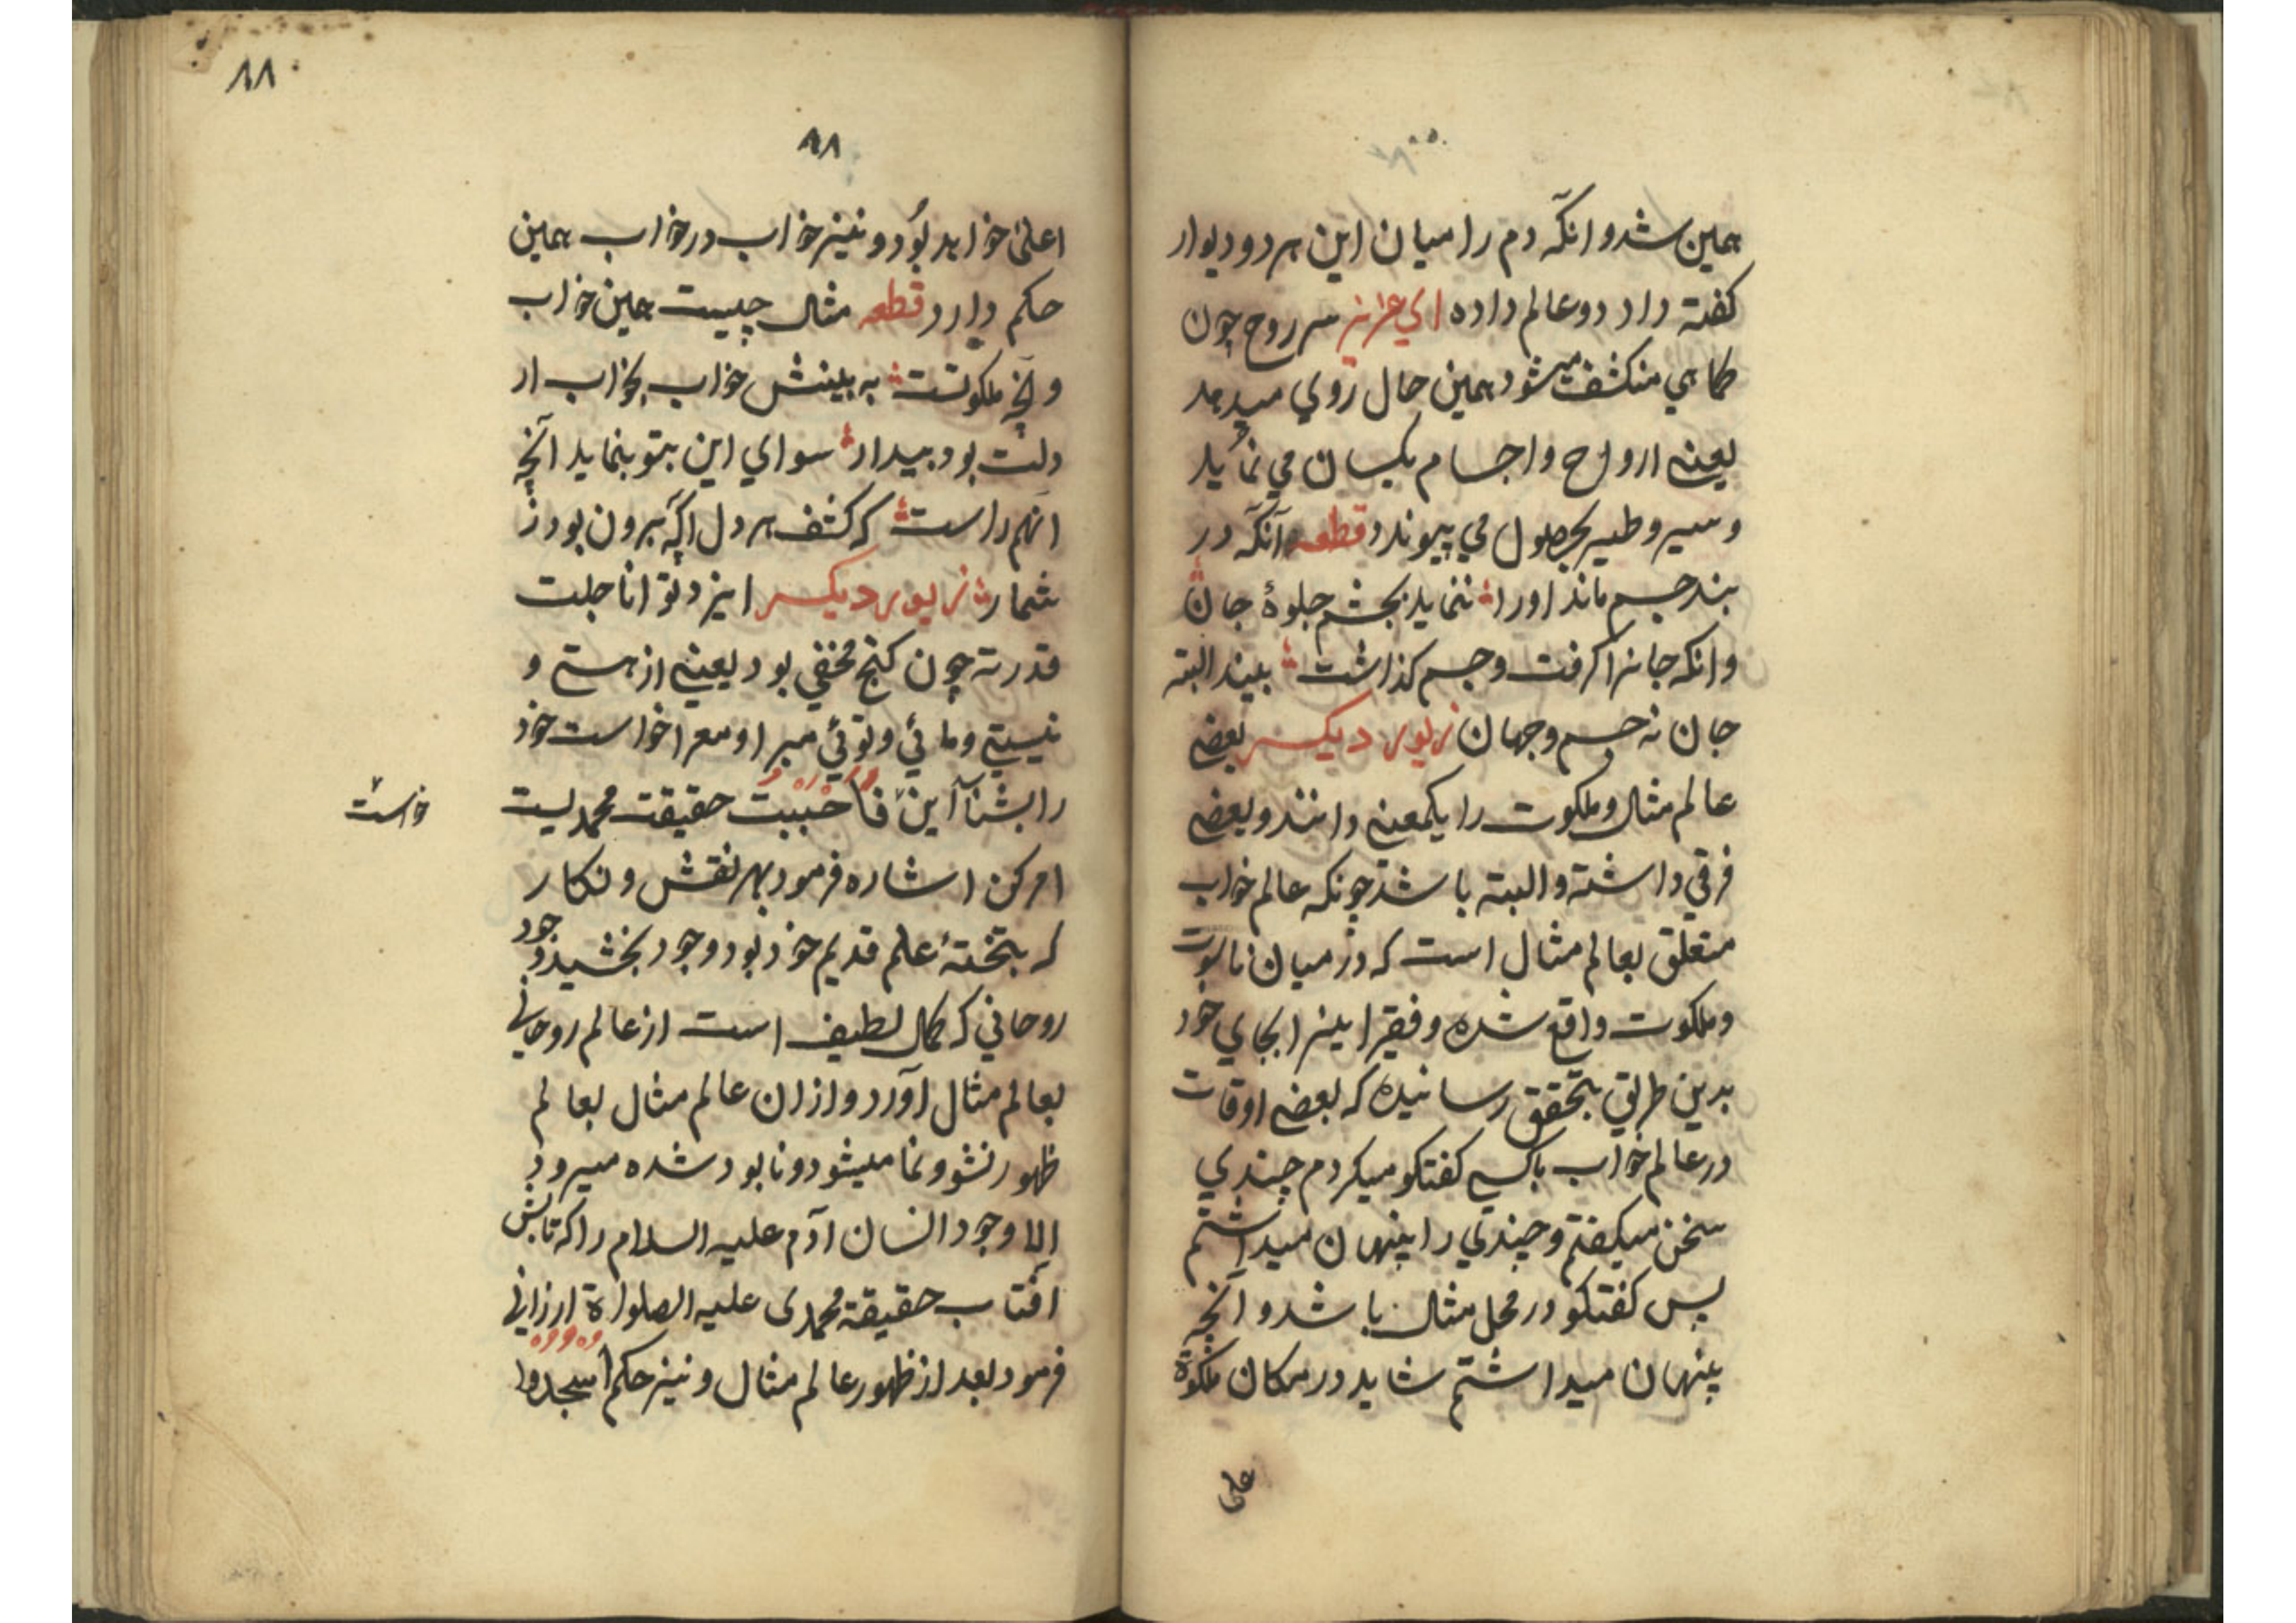 همین شد و انکه دم را میان این هر دو دیوار
کفته داد دو عالم داده ای عزیز سر روح چون
کماهی منکشف میشود همین حال روی میدهد
یعنی ارواح و اجسام یکسان می نماید
و سیر و طیر بحصول می پیوندد قطعه آنکه در
بند جسم ماند او را ننماید بچشم جلوۀ جان
وانکه جانرا کرفت و جسم کذاشت بیند البته
جان نه جسم و جهان زیور دیکر بعضی
عالم مثال و ملکوت را یکمعنی دانند و بعضی
فرقی داشته و البته باشد چونکه عالم خواب
متعلق بعالم مثال است که در میان ناسوت
و ملکوت واقع شده و فقیر این را بجای خود
بدین طریق بتحقق رسانیده که بعضی اوقات
در عالم خواب باکسی کفتکو میکردم چندی
سخن میکفتم و چندی را پنهان میداشتم
پس کفتکو در محل مثال باشد و آنچه
پنهان میداشتم شاید در مکان ملکوة
علی
۸۸
۸۸
اعلی خواهد بود و نیز خواب در خواب همین
حکم دارد قطعه مثال چیست همین خواب
و آنچه ملکوتست به بینش خواب بخواب ار
دلت بود بیدار سوای این بتو بنماید آنچه
آنهم راست که کشف هر دل اکه برون بود ز
شمار زیور دیکر ایزد توانا جلت
قدرته چون کنج مخفی بود یعنی از هستی و
نیستی و مائی و توئی مبرا و معرا خواست خود
را بشناآین فاحببت حقیقت محمدیست
خواست
امر کن اشاره فرمود بهر نقش و نکار
که بتختۀ علم قدیم خود بود وجود بخشید وجود
روحانی که کمال لطیف است از عالم روحانی
بعالم مثال آورد و از ان عالم مثال بعالم
ظهور نشو و نما میشود و نابود شده میرود
الا وجود انسان آدم علیه السلام را که تابش
آفتاب حقیقة محمدی علیه الصلواة ارزانی
فرمود بعد از ظهور عالم مثال و نیز حکم اسجدوا